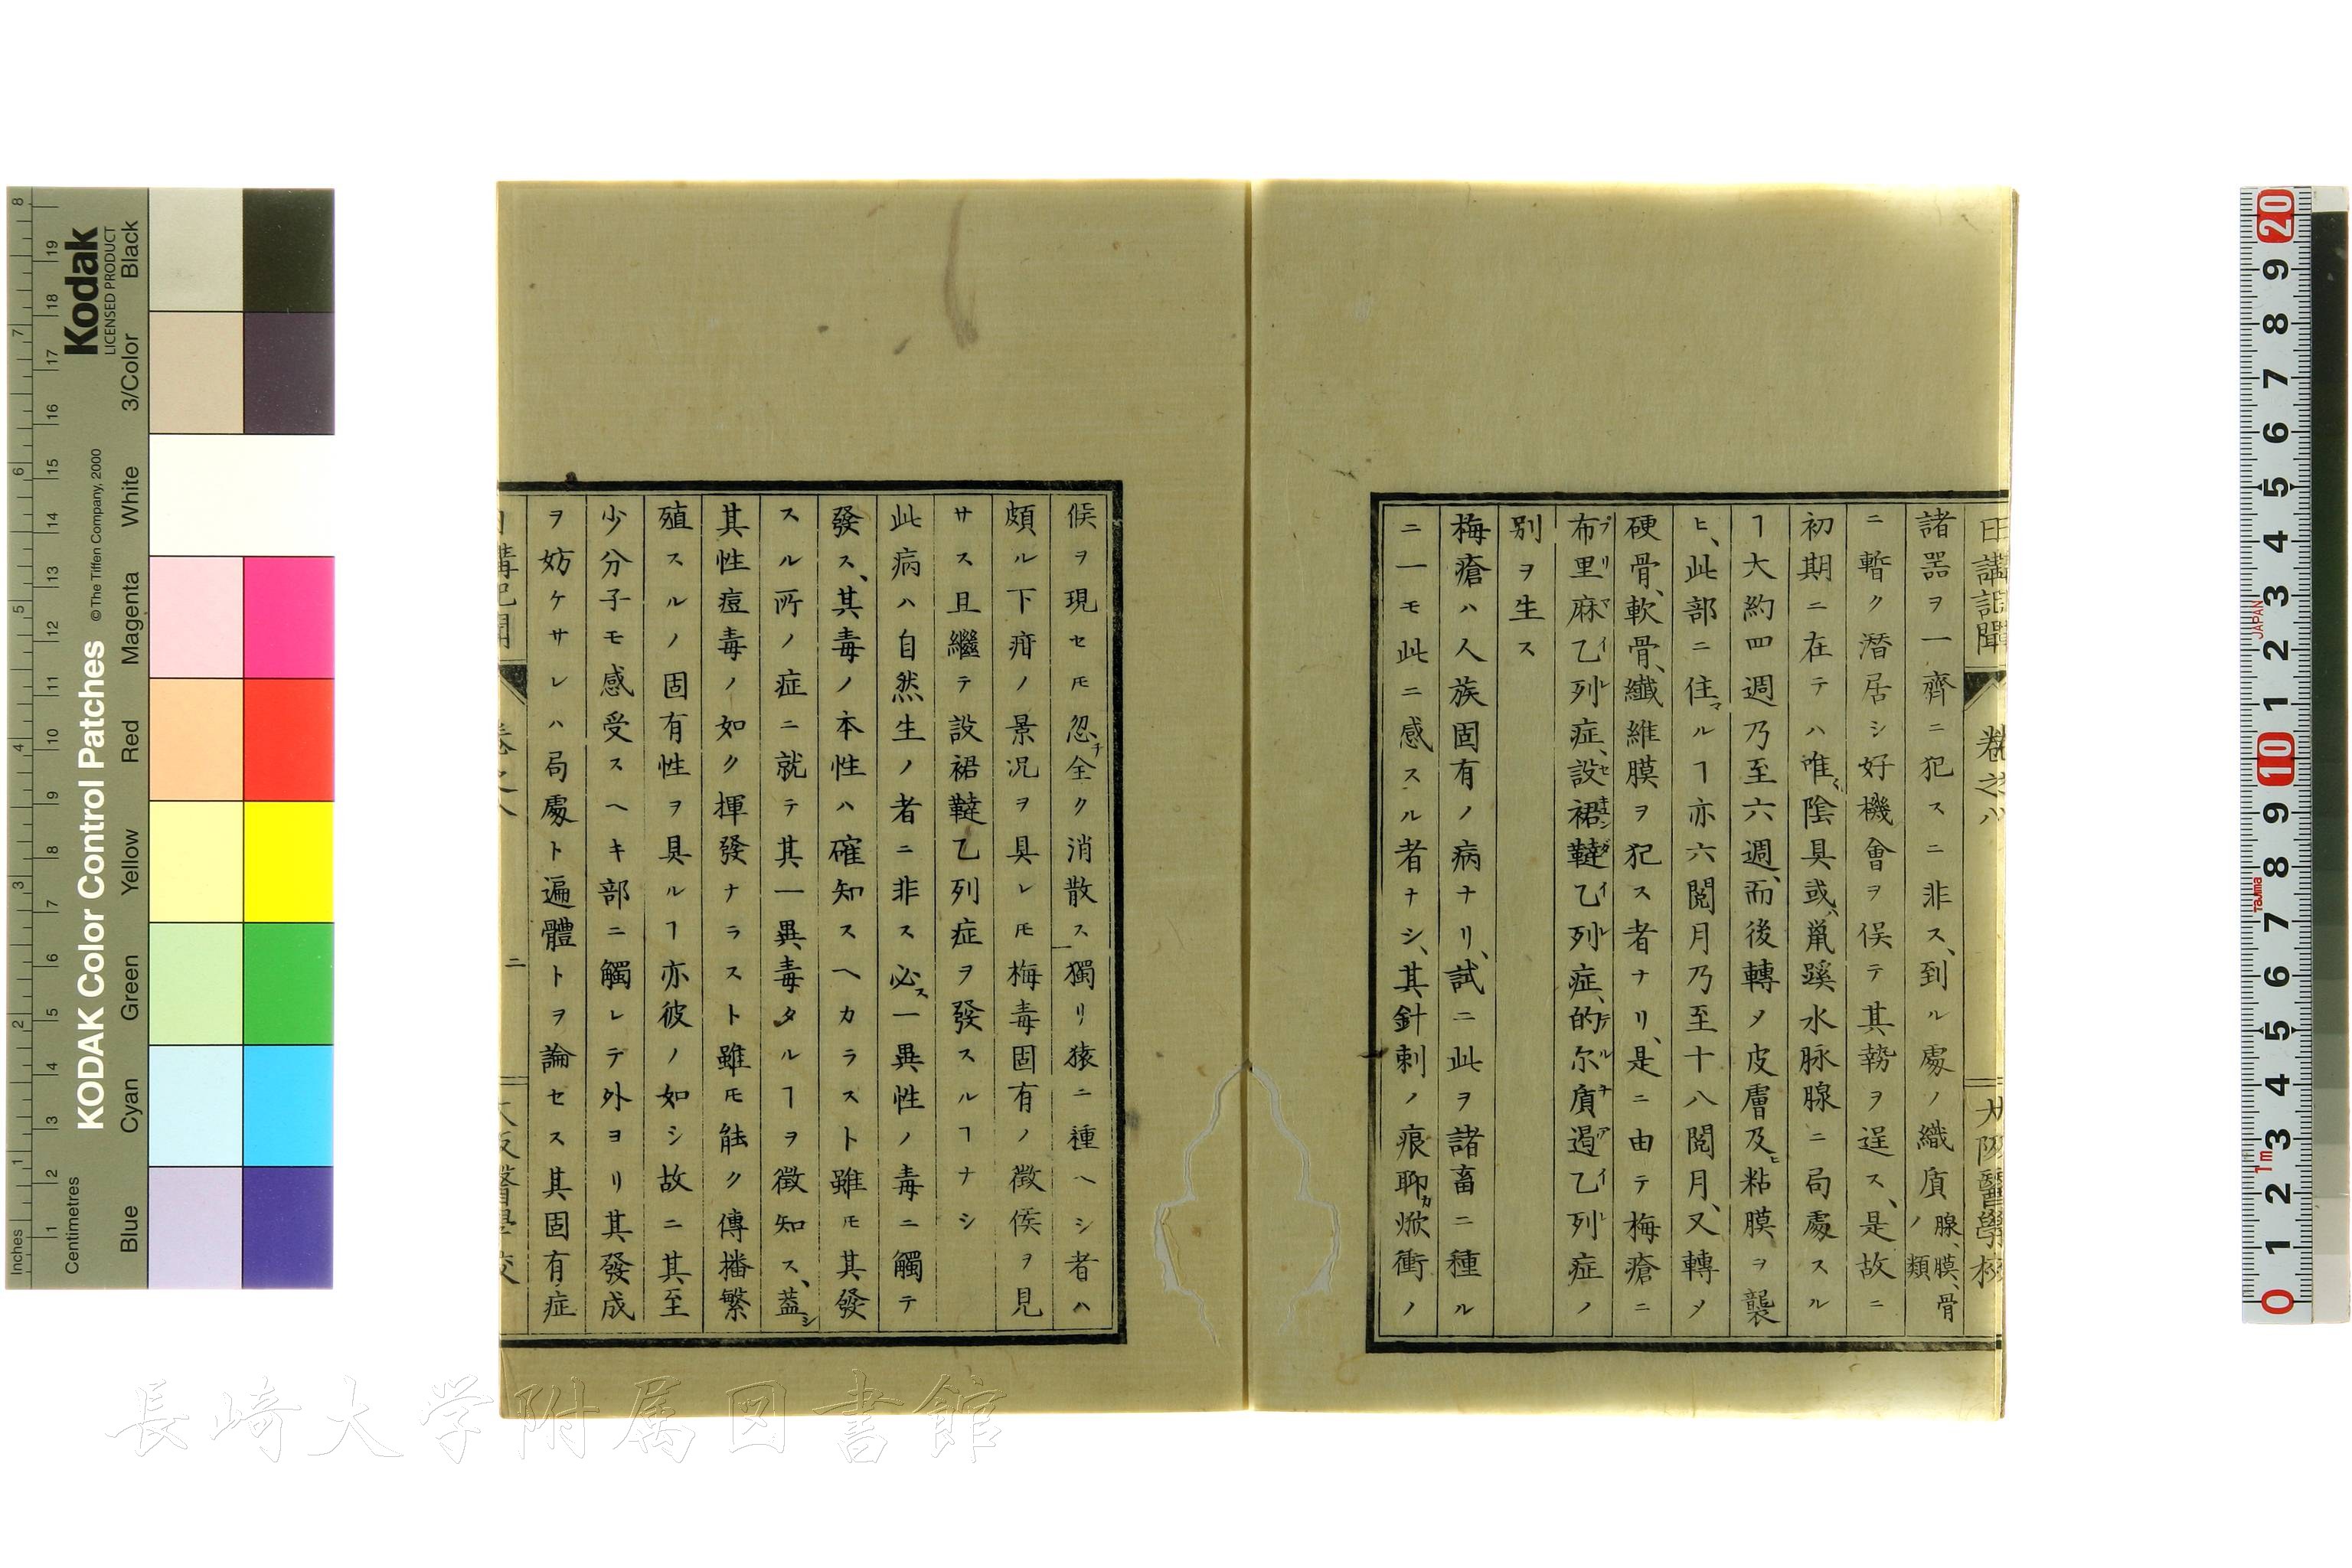 日講記聞 卷之八 大阪醫學校
諸器ヲ一齊ニ犯スニ非ス、到ル處ノ織質腺、膜、骨ノ類
ニ暫ク潛居シ好機會ヲ俟テ其勢ヲ逞ス、是故ニ
初期ニ在テハ唯陰具或鼠蹊水脉腺ニ局處スル
ヿ大約四週乃至六週、而後轉メ皮膚及ヒ粘膜ヲ襲
ヒ、此部ニ住マルヿ亦六閲月乃至十八閲月、又轉メ
硬骨、軟骨、纖維膜ヲ犯ス者ナリ、是ニ由テ梅瘡ニ
布里麻乙列症、設裙韃乙列症、的尔質遏乙列症ノ
別ヲ生ス
梅瘡ハ人族固有ノ病ナリ、試ニ此ヲ諸畜ニ種ル
ニ一モ此ニ感スル者ナシ、其針刺ノ痕聊カ焮衝ノ
候ヲ現セ𪜈忽チ全ク消散ス獨リ猿ニ種ヘシ者ハ
頗ル下疳ノ景況ヲ具レ𪜈梅毒固有ノ徴候ヲ見
サス且繼テ設裙韃乙列症ヲ發スルヿナシ
此病ハ自然生ノ者ニ非ス必ス一異性ノ毒ニ觸テ
發ス、其毒ノ本性ハ確知スヘカラスト雖𪜈其發
スル所ノ症ニ就テ其一異毒タルヿヲ徴知ス、蓋シ
其性痘毒ノ如ク揮發ナラスト雖𪜈能ク傳播繁
殖スルノ固有性ヲ具ルヿ亦彼ノ如シ故ニ其至
少分子モ感受スヘキ部ニ觸レテ外ヨリ其發成
ヲ妨ケサレハ局處ト遍體トヲ論セス其固有症
日講記聞 卷之八 二 大阪醫學校
長崎大学附属図書館
KODAK Color Control Patches
©The Tiffen Company, 2000
Kodak
LICENSED PRODUCT
Inches
Centimetres
Blue Cyan Green Yellow Red Magenta White 3/Color Black
JAPAN
Tajima
1m